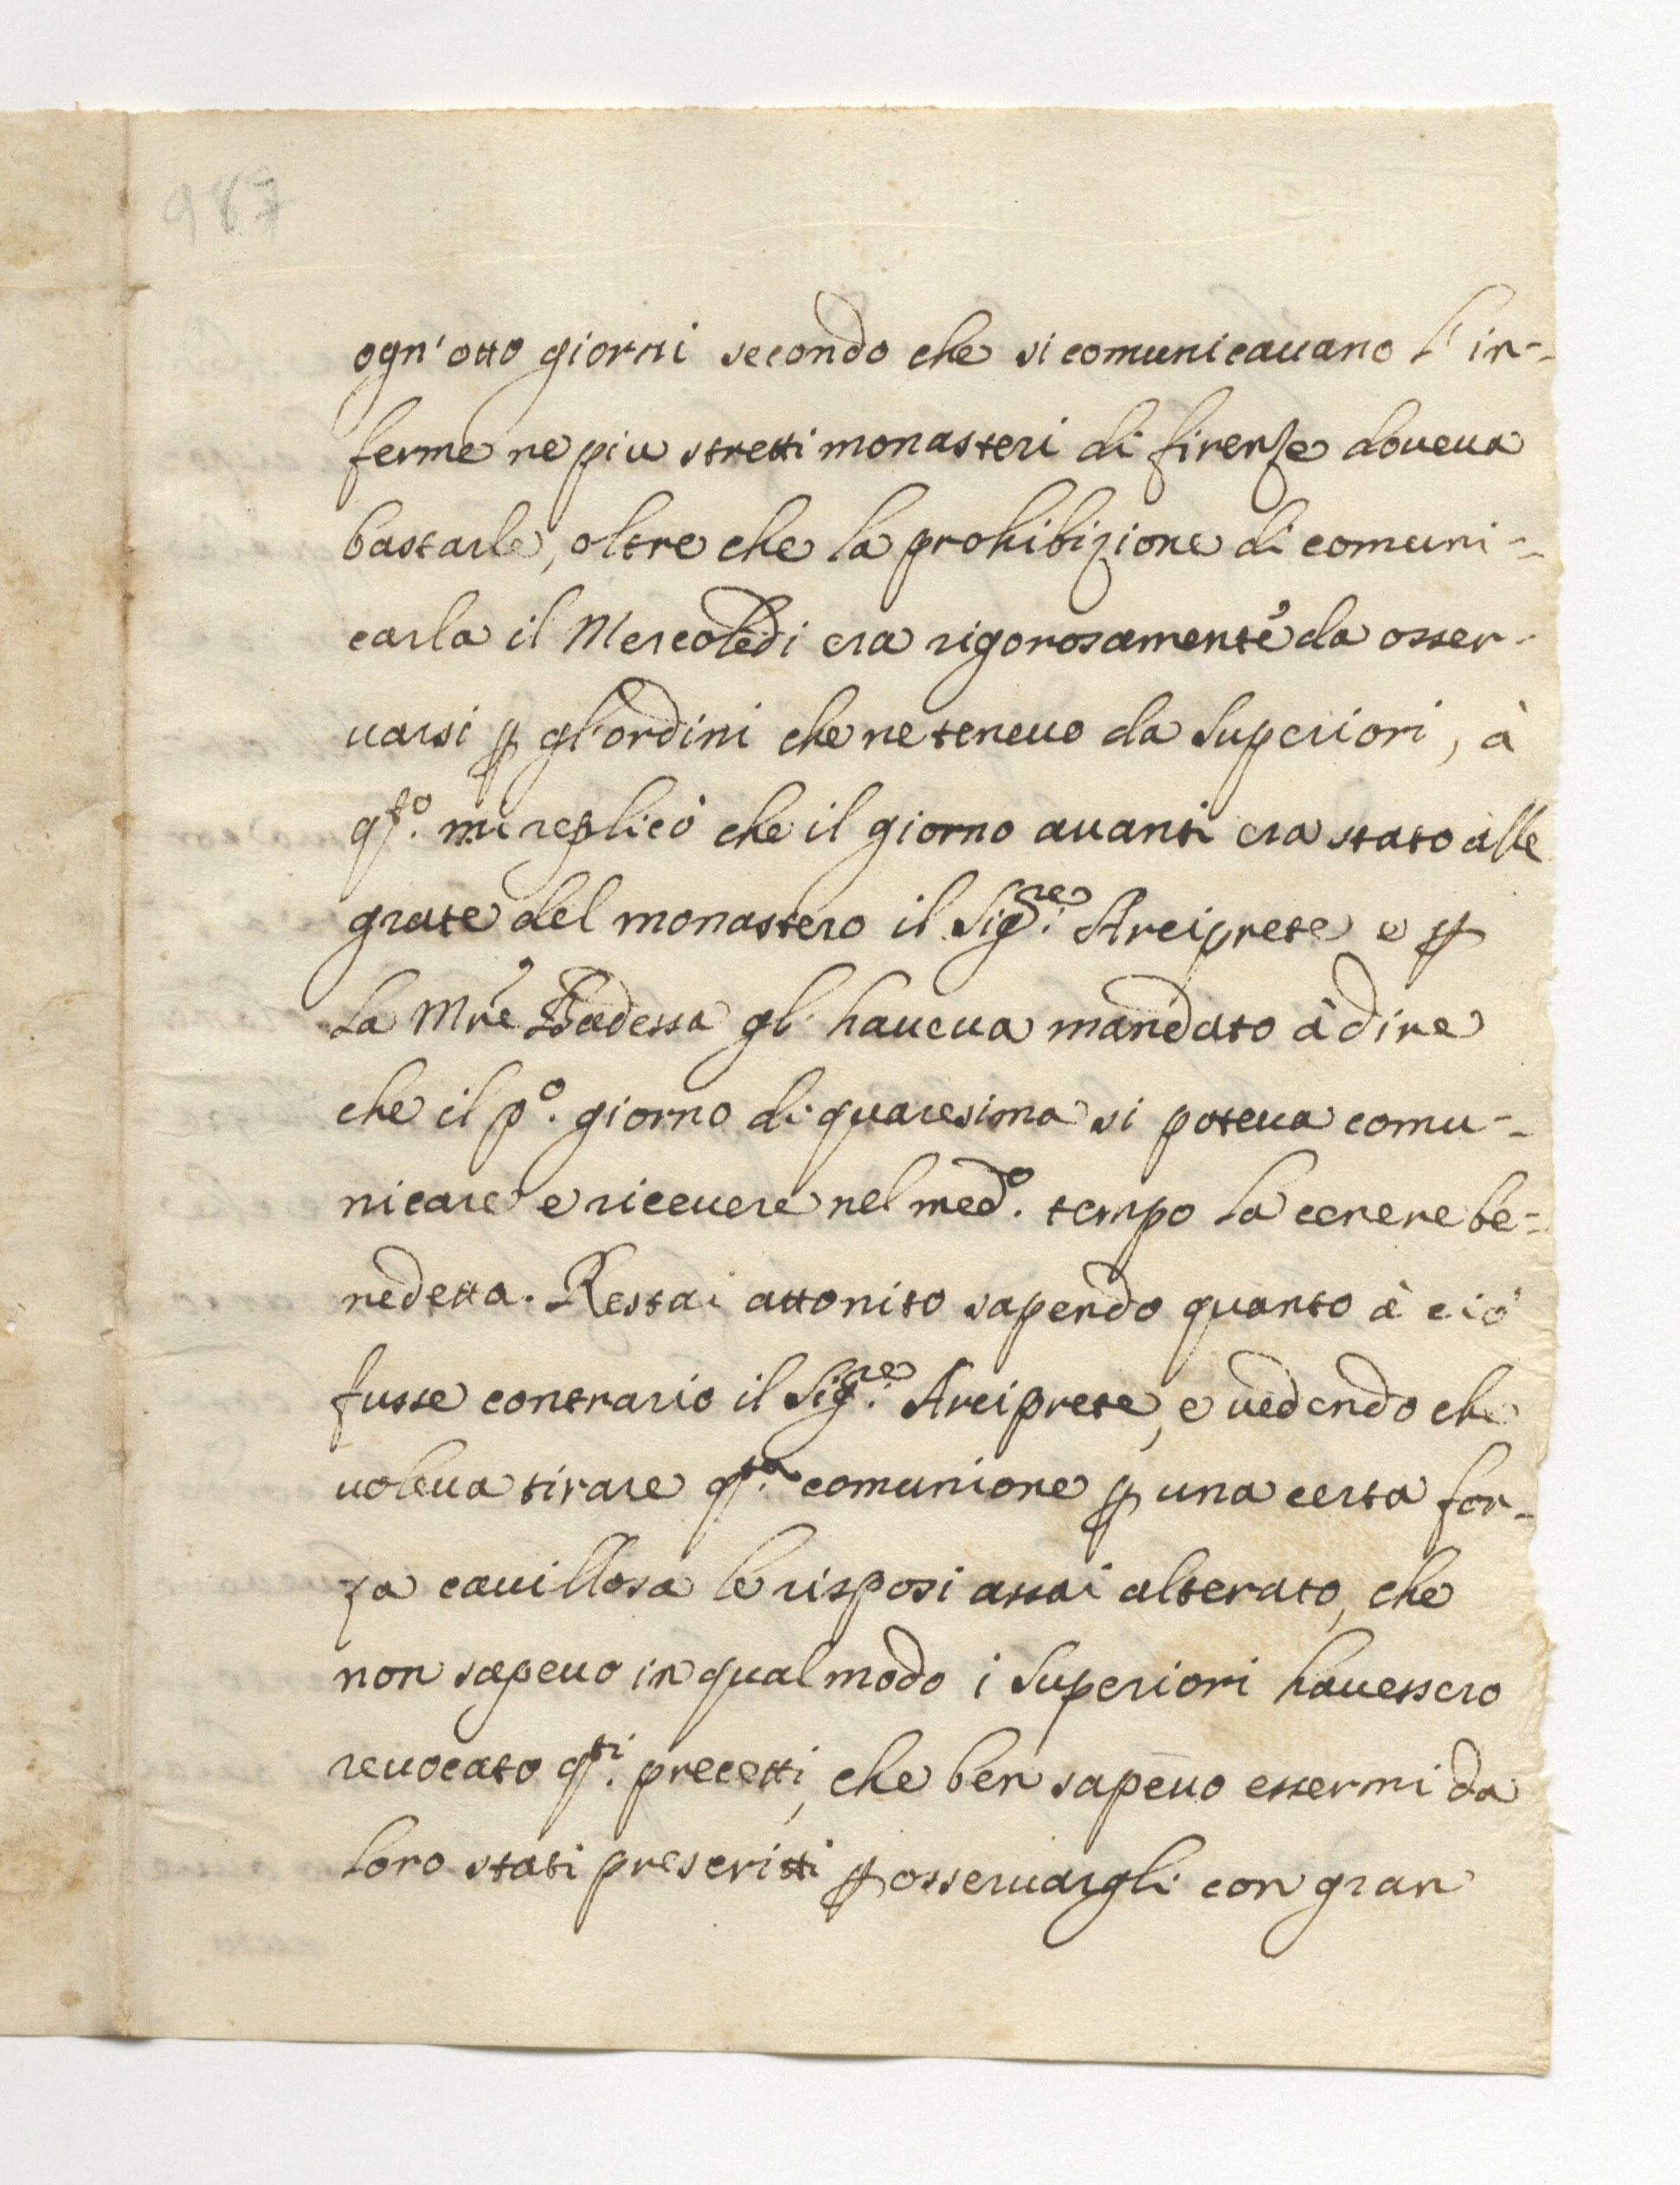 987
ogn' otto giorni secondo che si comunicauano l' in-
ferme ne piu stretti monasteri di firenze doueua
bastarle, oltre che la prohibizione di comuni-
carla il Mercoledi era rigorosamente da osser-
uarsi ꝑ gl'ordini che ne teneuo da Superiori, à
qsto. mi replicò che il giorno auanti era stato alle
grate del monastero il Sigre. Arciprete e ꝑ
la Mre Badessa gl' haueua mandato à dire
che il po. giorno di quaresima si poteua comu-
nicare e riceuere nel medo. tempo la cenere be-
nedetta. Restai attonito sapendo quanto à ciò
fusse contrario il Sigre. Arciprete, e uedendo che
uoleua tirare qsta. comunione ꝑ una certa for-
za cauillosa le risposi assai alterato, che
non sapeuo in qual modo i Superiori hauessero
reuocato qsti. precetti, che ben sapeuo essermi da
loro stati prescritti ꝑ osseruargli con gran